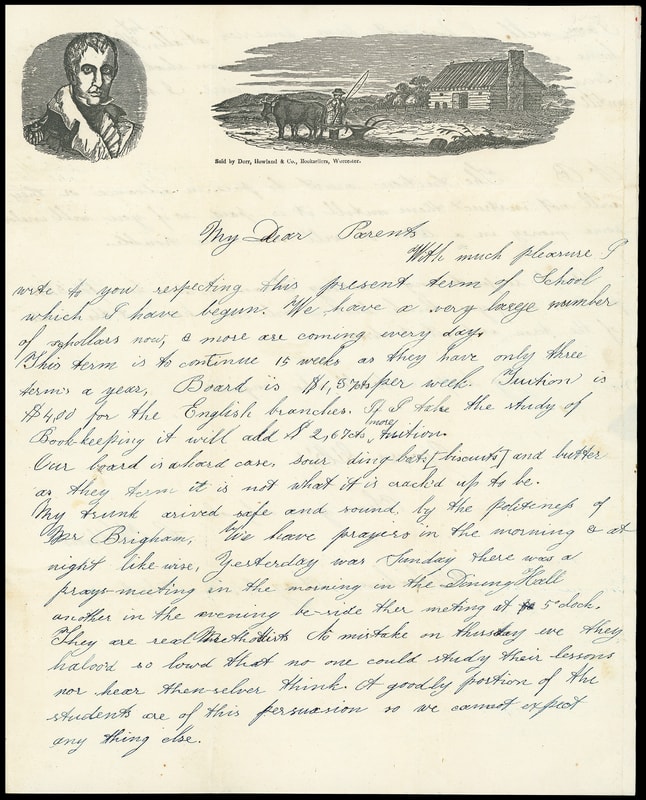 Sold by Dorr, Howland & Co., Booksellers, Worcester.
My Dear Parents
With much pleasure I
write to you respecting this present term of School
which I have begun. We have a very large number
of schollars now, & more are coming every day,
This term is to continue 15 weeks as they have only three
terms a year, Board is $1,37cts per week. Tuition is
$4,00 for the English branches. If I take the study of
Book-keeping it will add $2,67cts more tuition.
Our board is a hard case, sour ding bats [biscuits] and butter
as they term it is not what it is crack'd up to be.
My trunk arived safe and sound by the politeness of
Mr Brigham, We have prayers in the morning & at
night like-wise, Yesterday was Sunday there was a
prayr-meeting in the morning in the Dining Hall
another in the evening be-side ther meting at 5 oclock.
They are real Methodists No mistake on thursday eve they
halood so lowd that no one could study their lessons
nor hear them-selves think. A goodly portion of the
students are of this persuasion so we cannot expect
any thing else.